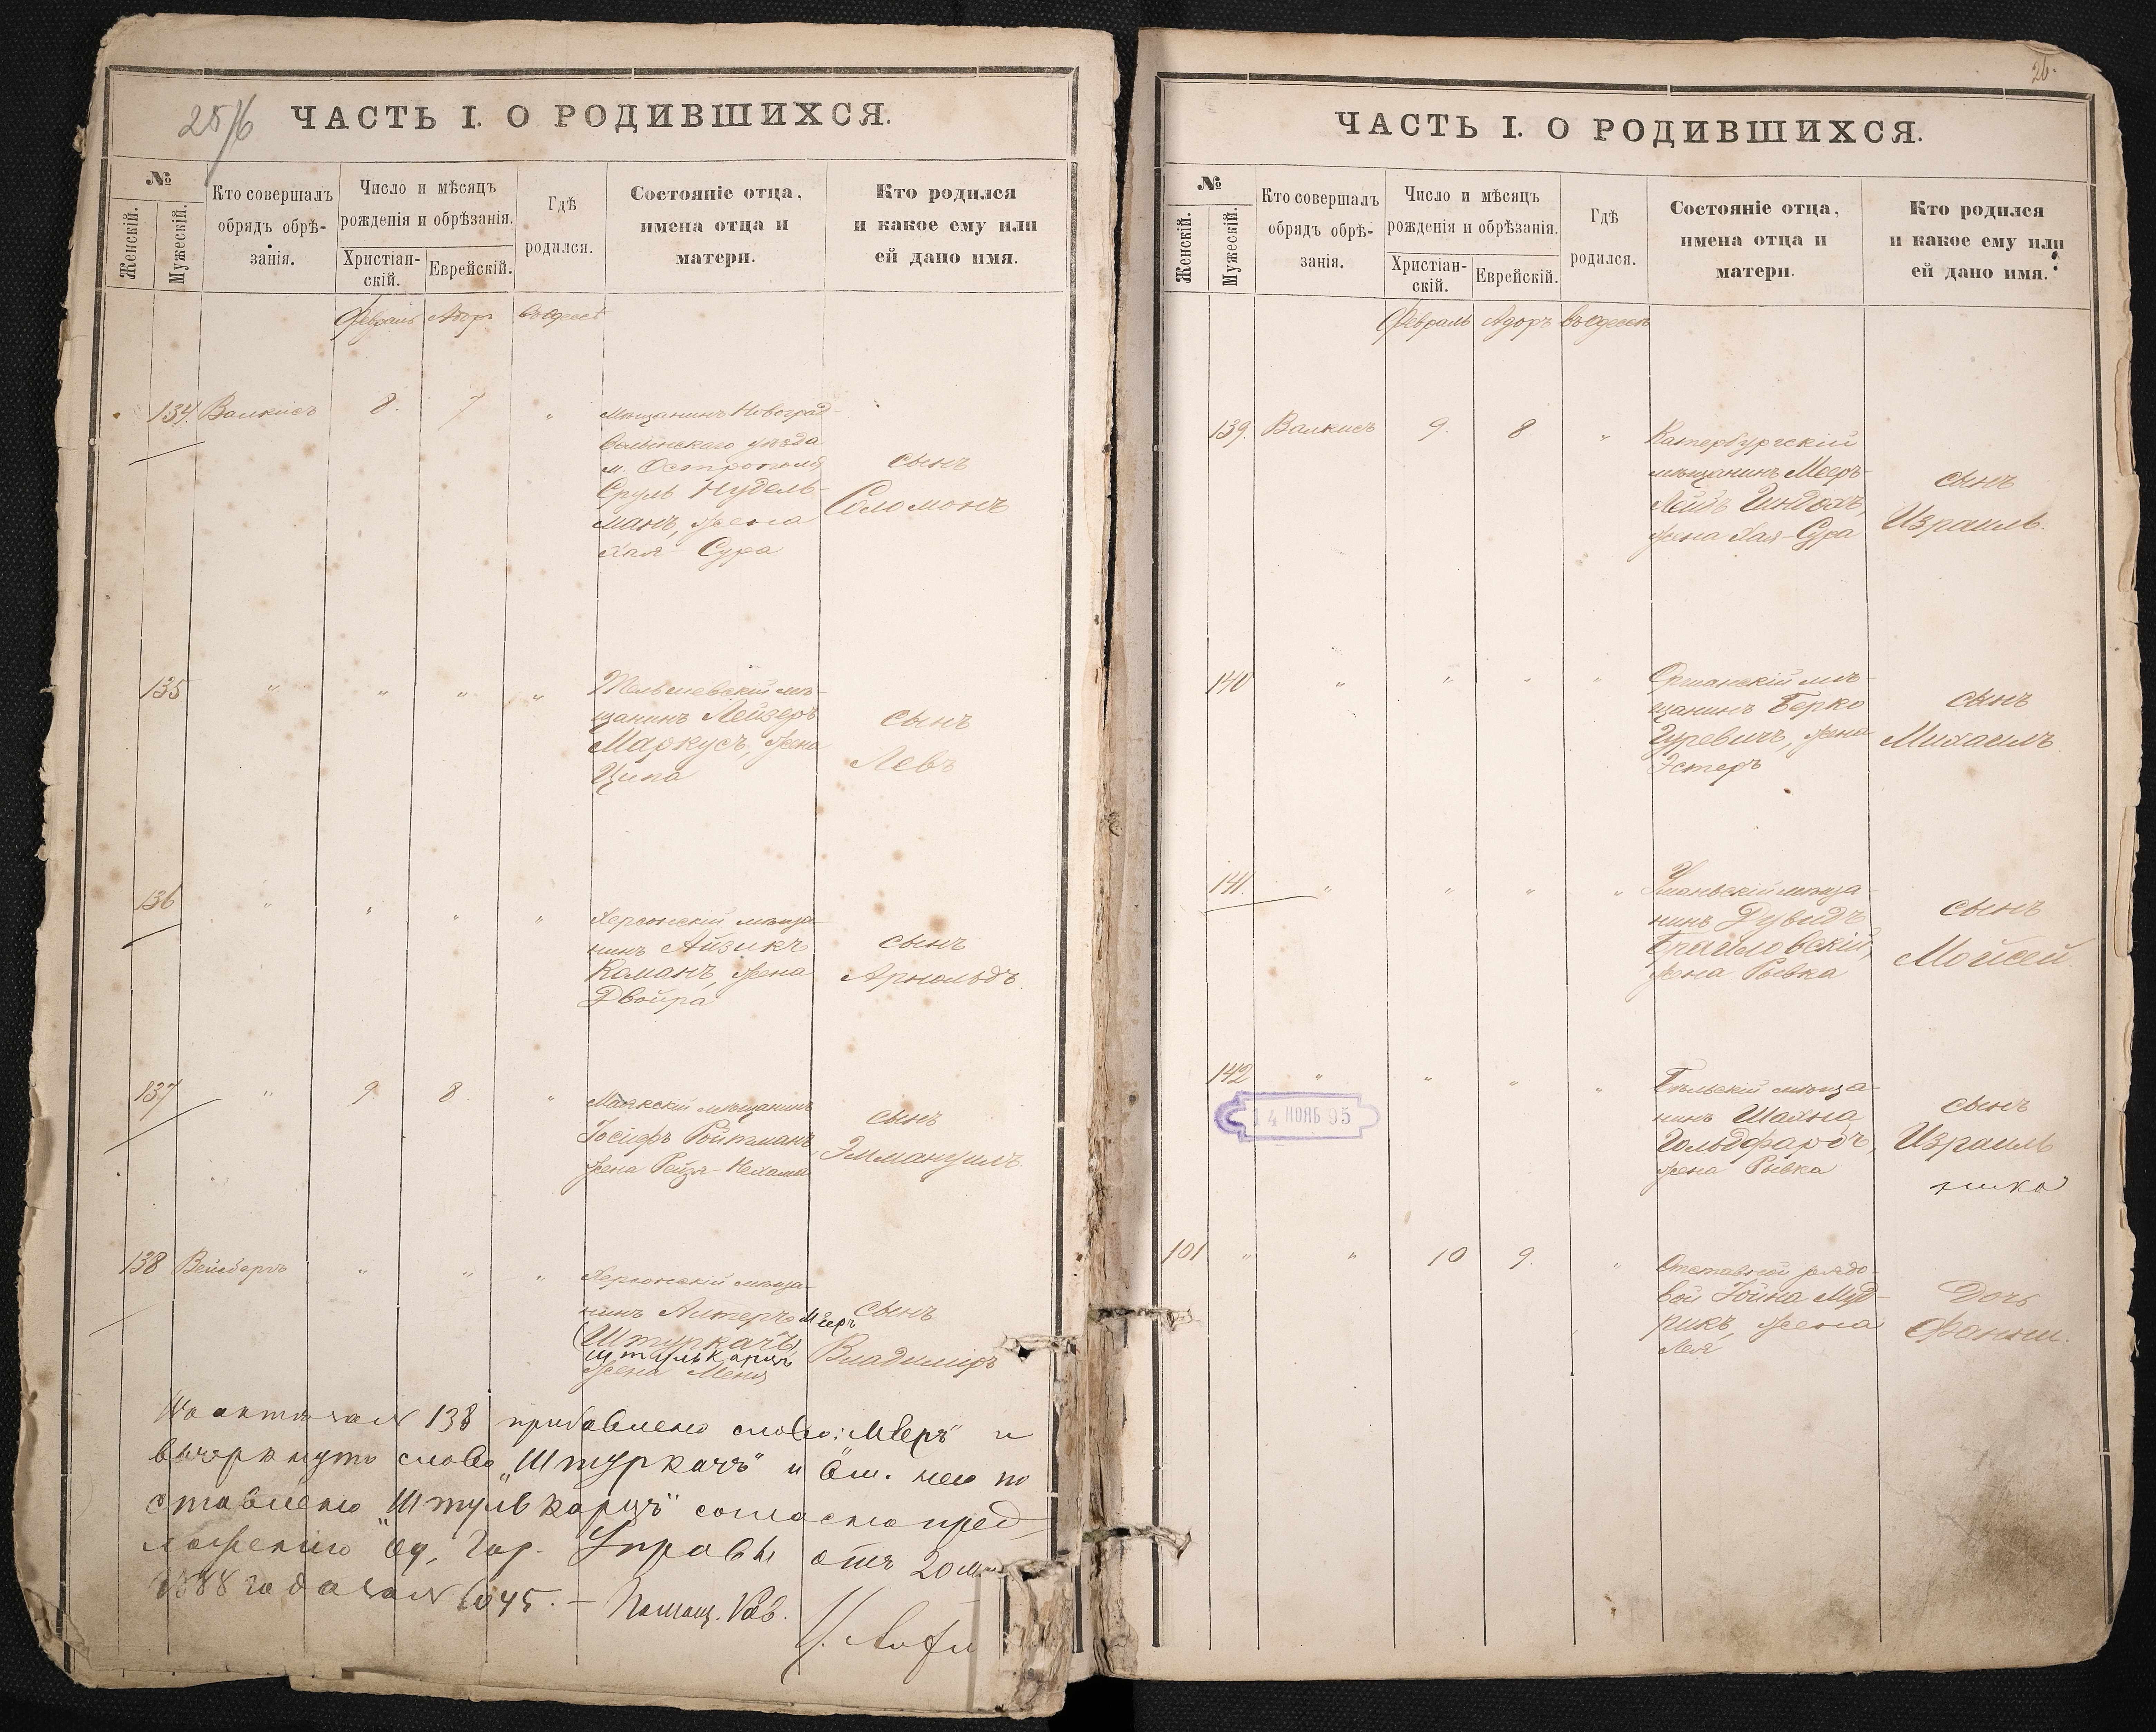 25/6
ЧАСТЬ I. О РОДИВШИХСЯ.
№
Женскій.
Мужескій.
Кто совершалъ
обрядъ обрѣ-
занія.
Число и мѣсяцъ
рожденія и обрѣзанія.
Христіан-
скій.
Еврейскій.
Гдѣ
родился.
Состояніе отца,
имена отца и
матери.
Кто родился
и какое ему или
ей дано имя.
Февраль Адоръ въ Одессѣ
134. Валкисъ 8. 7 "
Мѣщанинъ Новоград-
Волынскаго уѣзда
м. Острополя
Сруль Нудель-
манъ, жена
Хая-Сура
сынъ
Соломонъ
135 " " " "
Тельшевскій мѣ-
щанинъ Лейзеръ
Маркусъ, жена
Ципа
сынъ
Левъ
136 " " " "
Херсонскій мѣща-
нинъ Айзикъ
Команъ, жена
Двойра
сынъ
Арнольдъ
137 " 9 8 "
Маякскій мѣщанинъ
Іосифъ Ройтманъ
жена Рейзя-Нехама
сынъ
Эммануилъ
138 Вейсбергъ " " "
Херсонскій мѣща-
нинъ Алтеръ Меръ
(Штуркачъ)
Штулькарцъ
жена Меня
сынъ
Владиміръ
По акту за № 138 прибавлено слово: "Меръ" и
вычеркнуто слово "Штуркачъ" и вм. него по
ставлено "Штулькарцъ" согласно пред
ложенію Од. Гор. Управы отъ 20
1888 года за № 6045. — Помощ. Рав.
26.
ЧАСТЬ I. О РОДИВШИХСЯ.
№
Женскій.
Мужескій.
Кто совершалъ
обрядъ обрѣ-
занія.
Число и мѣсяцъ
рожденія и обрѣзанія.
Христіан-
скій.
Еврейскій.
Гдѣ
родился.
Состояніе отца,
имена отца и
матери.
Кто родился
и какое ему или
ей дано имя.
Февраль Адоръ въ Одессѣ
139. Валкисъ 9. 8 "
Катербургскій
мѣщанинъ Мееръ-
Лейбъ
жена Хая-Сура
сынъ
Израиль.
140 " " " "
Оршанскій мѣ-
щанинъ Берко
Гуревичъ, жена
Эстеръ
сынъ
Михаилъ
141. " " " "
Уманьскій мѣща-
нинъ Дувидъ
Браиловскій,
жена Рывка
сынъ
Мойсей.
142 " " " "
14 НОЯБ 95
Бѣльскій мѣща-
нинъ Шахна
Гольдфарбъ,
жена Рывка
сынъ
Израиль
101 " " 10 9. "
Отставной рядо-
вой Іойна Муд-
рикъ, жена
Лея
Дочь
Фанни.